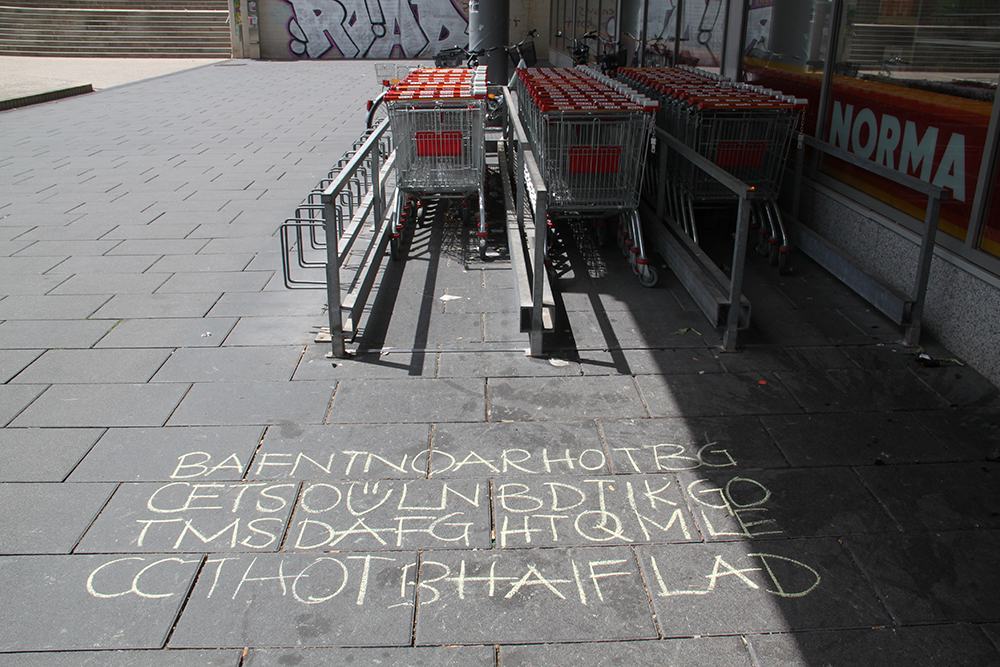 ROAD
NORMA
BAFNTNOARHOTBG
CETSOÜLNBDTIKGO
TMSDAFGHTQMLE
CCTHOTBHAIFLAD